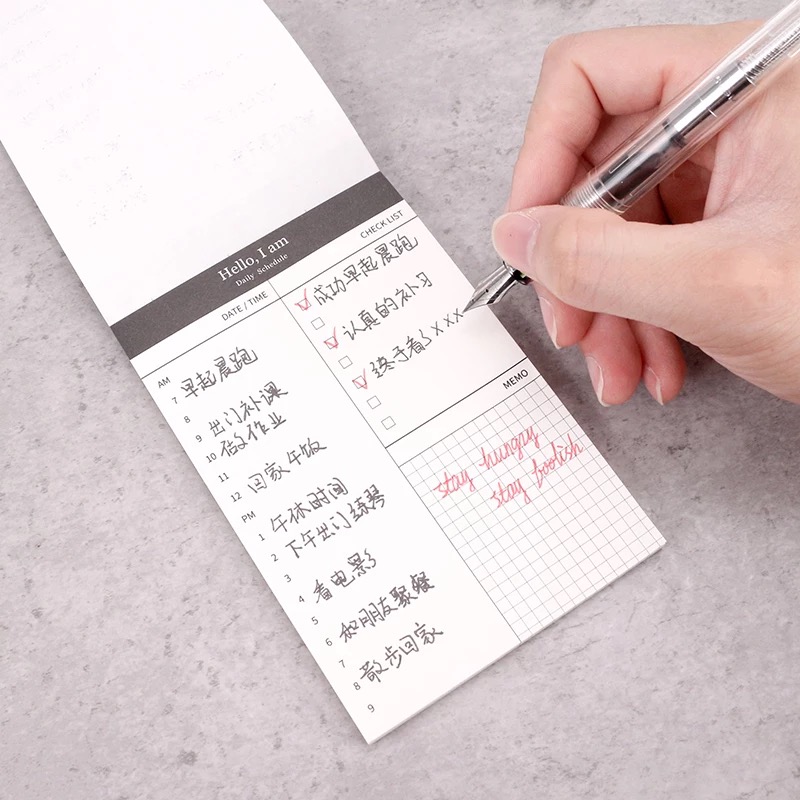 Hello, I am
Daily Schedule
DATE / TIME
AM
7 早起晨跑
8
9 出门补课
10 做作业
11
12 回家午饭
PM
1 午休时间
2 下午出门练琴
3
4 看电影
5
6 和朋友聚餐
7
8 散步回家
9
CHECK LIST
成功早起晨跑
认真的补习
终于看了xxx
MEMO
stay hungry
stay foolish